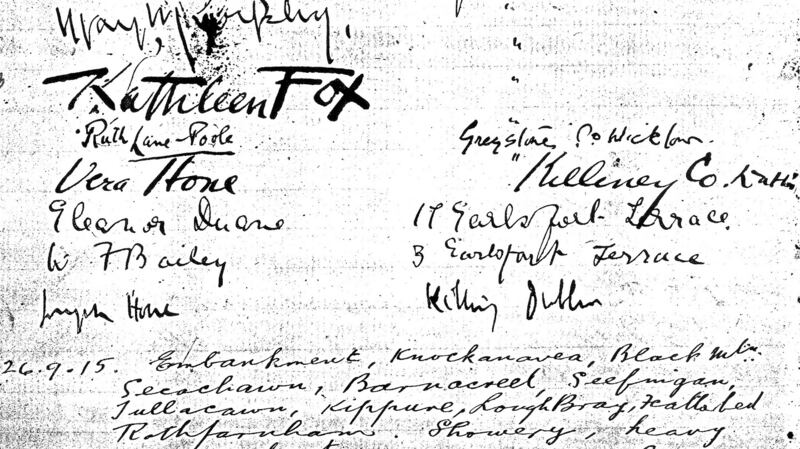 Kathleen Fox
Ruth Lane-Poole Greystones Co Wicklow.
Vera Hone " Killiney Co. Dublin
Eleanor Duane 17 Earlsfort Terrace.
W F Bailey 3 Earlsfort Terrace
Joseph Hone Killiney Dublin
26.9.15. Embankment, Knockanavea, Black Mtn.
Seecochawn, Barnacreel, Seefingan,
Tullacawn, Kippure, Lough Bray, Featherbed
Rathfarnham. Showery, heavy